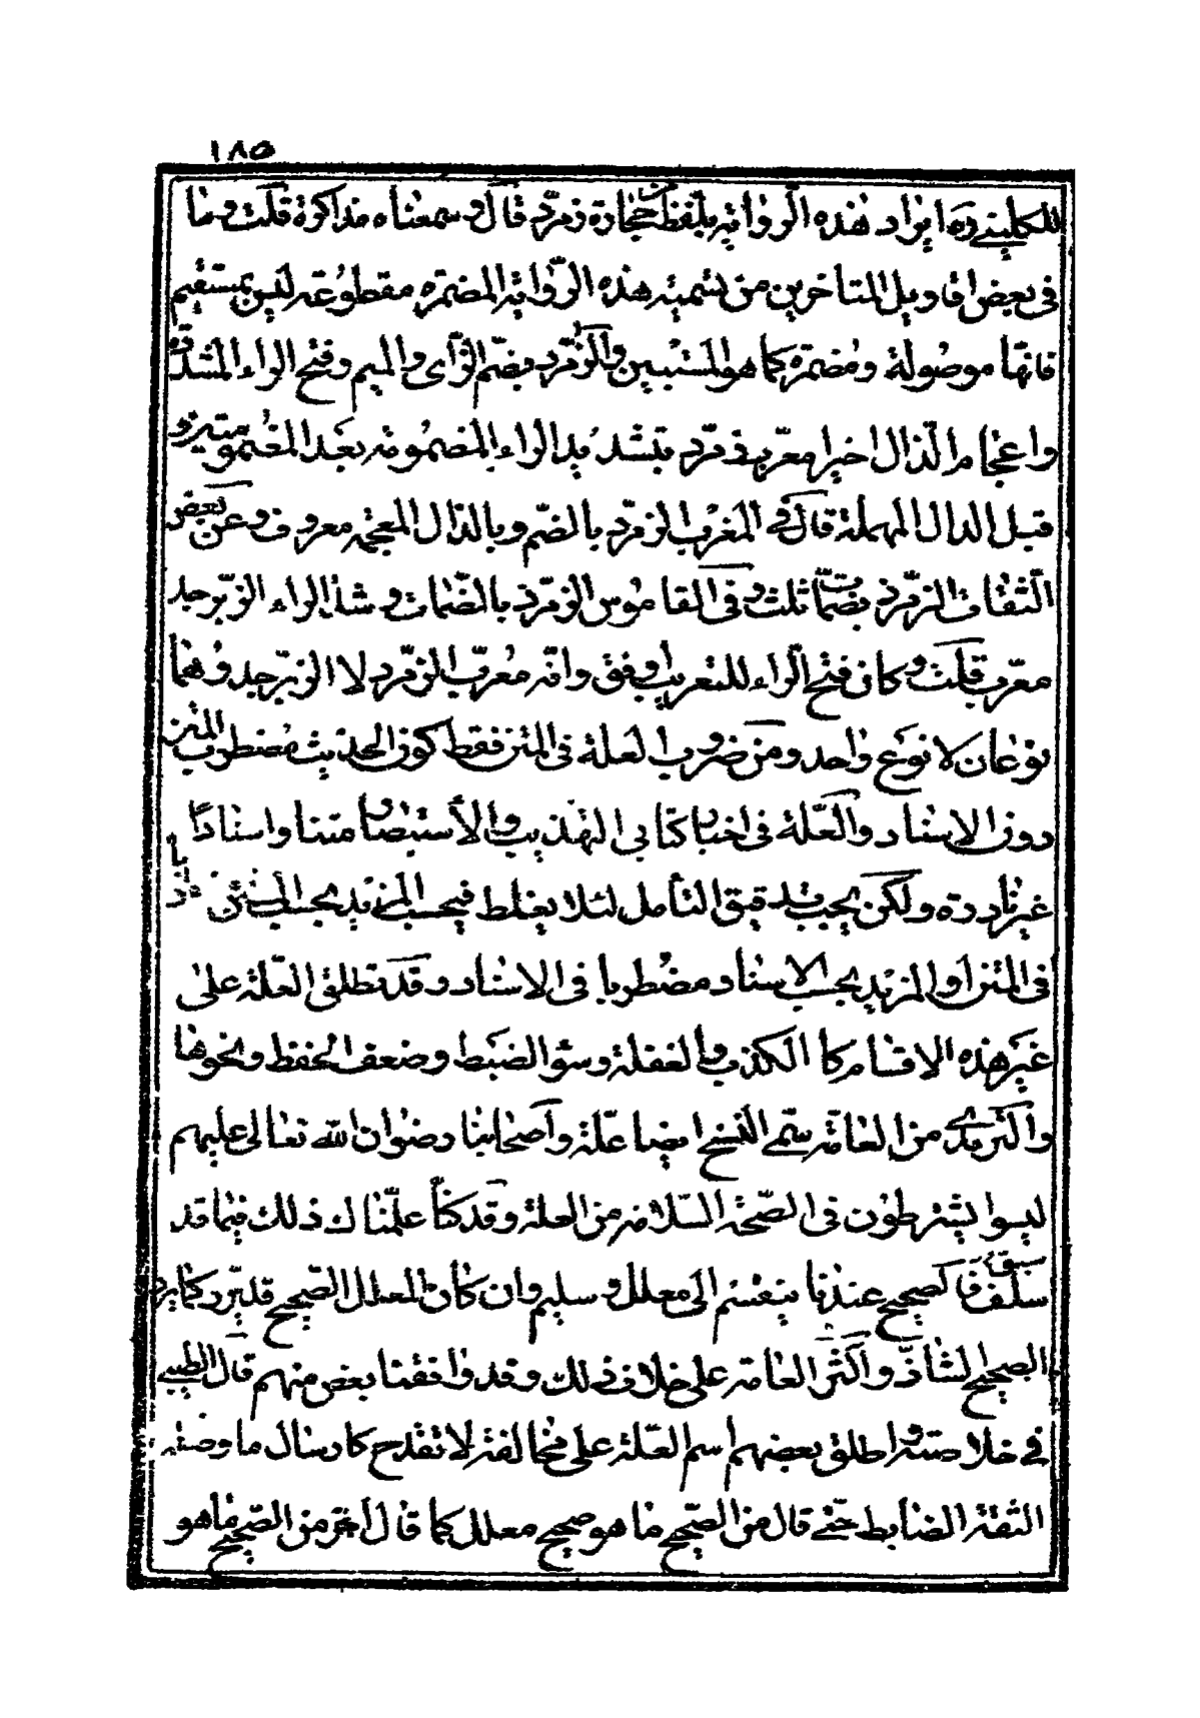 ١٨٥
للكلينى ره ايراد هذه الرواية بلفظ حجارة زمرد قال وسمعناه مذاكرة قلت وما
فى بعض اقاويل المتأخرين من تسمية هذه الرواية المضمرة مقطوعة ليس بمستقيم
فانها موصولة ومضمرة كما هو المستبين والزمرد بضم الزاى والميم وفتح الراء المشددة
واعجام الذال اخيرا معرب بتشديد الراء المضمومة بعد المضمومتين و
قبل الدال المهملة قال فى المغرب الزمرد بالضم وبالذال المعجمة معروف وعن بعض
الثقات الزمرد بضمات ثلث وفى القاموس الزمرد بالضمات وشد الراء الزبرجد
معرب قلت وكان فتح الراء للتعريب اوفق وانه معرب الزمرد لا الزبرجد وهما
نوعان لا نوع واحد ومن ضروب العلة فى المتن فقط كون الحديث مضطرب المتن
دون الاسناد والعلة فى اخبار كتابى التهذيب والاستبصار متنا واسنادًا
غير نادرة ولكن يجب تدقيق التأمل لئلا يغلط فيحسب المزيد بحسب المتن
فى المتن او المزيد بحسب الاسناد مضطربا فى الاسناد وقد تطلق العلة على
غير هذه الاقسام كما الكذب والغفلة وسوء الضبط وضعف الحفظ ونحوها
والترمذى من العامة سمى النسخ ايضا علة واصحابنا رضوان الله تعالى عليهم
ليسوا يشترطون فى الصحة السلامة من العلة وقد كنا علمناك ذلك فيما قد
سلف سبق فالصحيح عندنا ينقسم الى معلل وسليم وان كان المعلل الصحيح قد يرد كما يرد
الصحيح الشاذ واكثر العامة على خلاف ذلك وقد وافقنا بعض منهم قال الطيبى
فى خلاصته واطلق بعضهم اسم العلة على مخالفة لا تقدح كارسال ما وصله
الثقة الضابط حتى قال من الصحيح ما هو صحيح معلل كما قال آخر من الصحيح ما هو